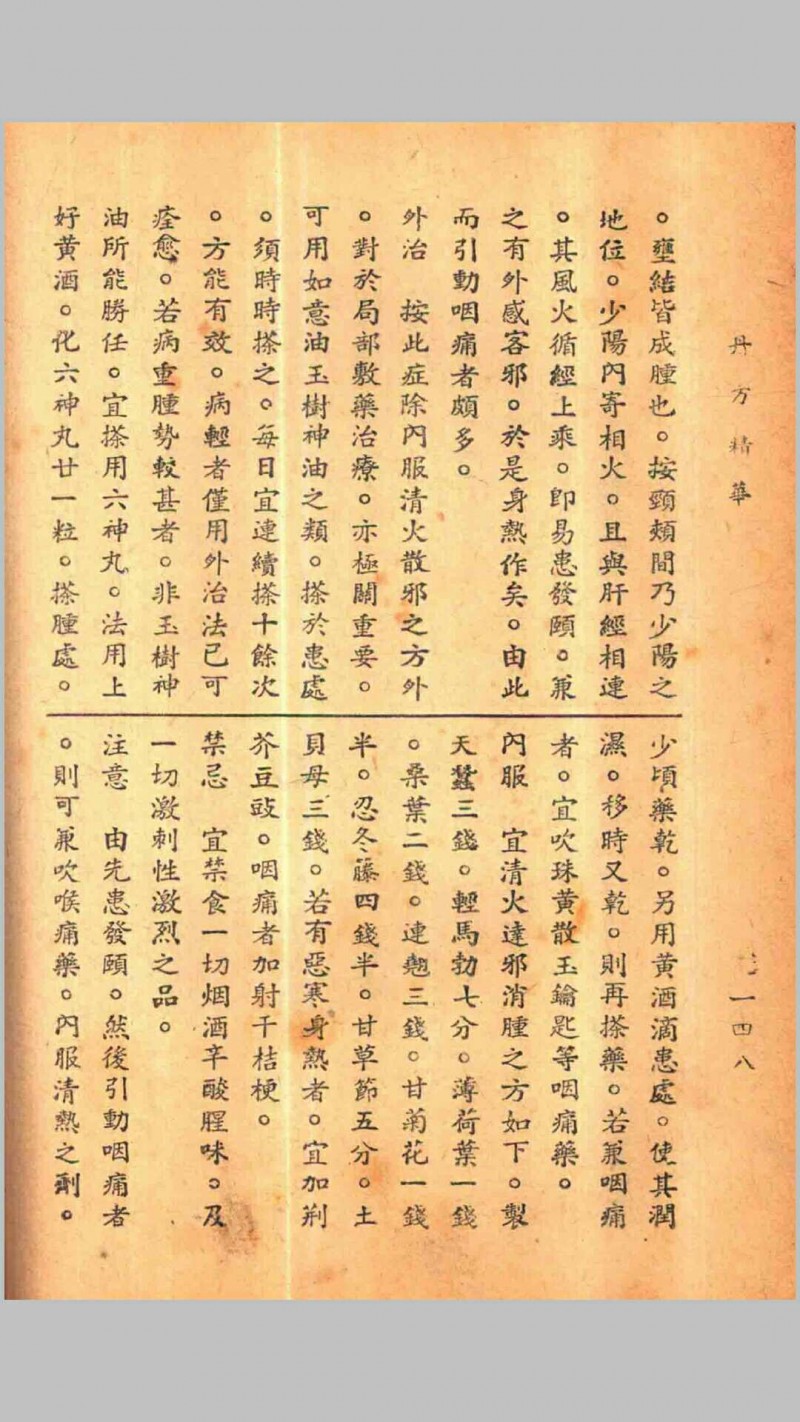 丹方精華
一四八
。壅結皆成腫也。按頸頰間乃少陽之
地位。少陽內寄相火。且與肝經相連
。其風火循經上乘。卽易患發頤。兼
之有外感客邪。於是身熱作矣。由此
而引動咽痛者頗多。
外治　按此症除內服清火散邪之方外
。對於局部敷藥治療。亦極關重要。
可用如意油玉樹神油之類。搽於患處
。須時時搽之。每日宜連續搽十餘次
。方能有效。病輕者僅用外治法已可
痊愈。若病重腫勢較甚者。非玉樹神
油所能勝任。宜搽用六神丸。法用上
好黃酒。化六神丸廿一粒。搽腫處。
少頃藥乾。另用黃酒滴患處。使其潤
濕。移時又乾。則再搽藥。若兼咽痛
者。宜吹珠黃散玉鑰匙等咽痛藥。
內服　宜清火達邪消腫之方如下。製
天蠶三錢。輕馬勃七分。薄荷葉一錢
。桑葉二錢。連翹三錢。甘菊花一錢
半。忍冬藤四錢半。甘草節五分。土
貝母三錢。若有惡寒身熱者。宜加荆
芥豆豉。咽痛者加射干桔梗。
禁忌　宜禁食一切烟酒辛酸腥味。及
一切激刺性激烈之品。
注意　由先患發頤。然後引動咽痛者
。則可兼吹喉痛藥。內服清熱之劑。